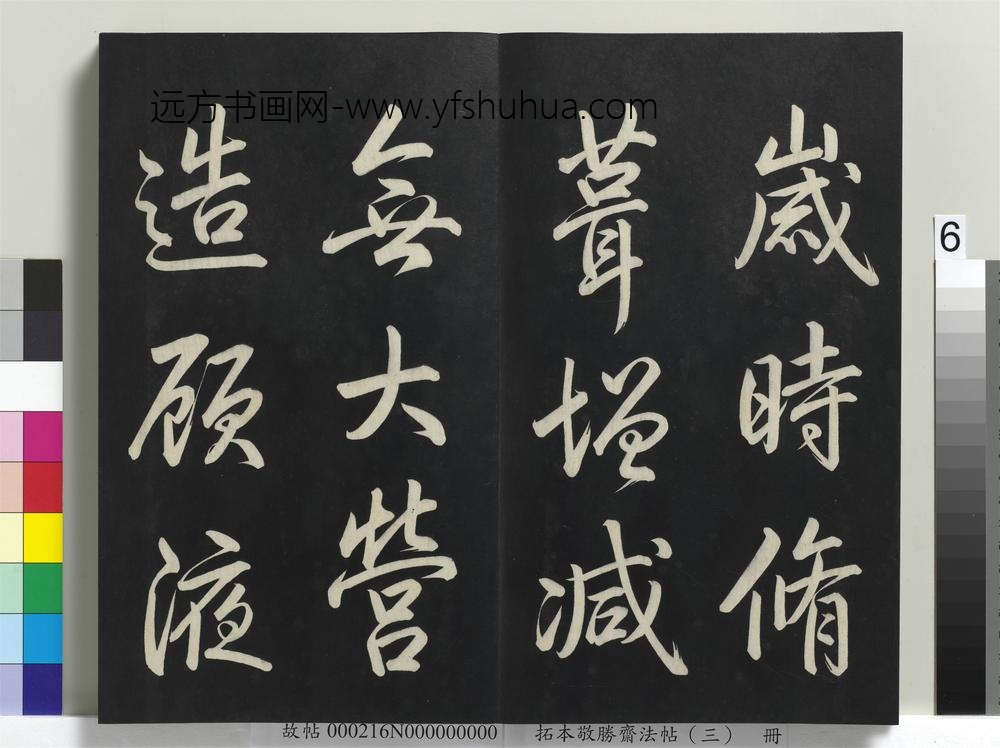 歲時脩
葺增減
無大營
造顧液
远方书画网-www.yfshuhua.com
6
故帖 000216N000000000
拓本敬勝齋法帖（三） 冊